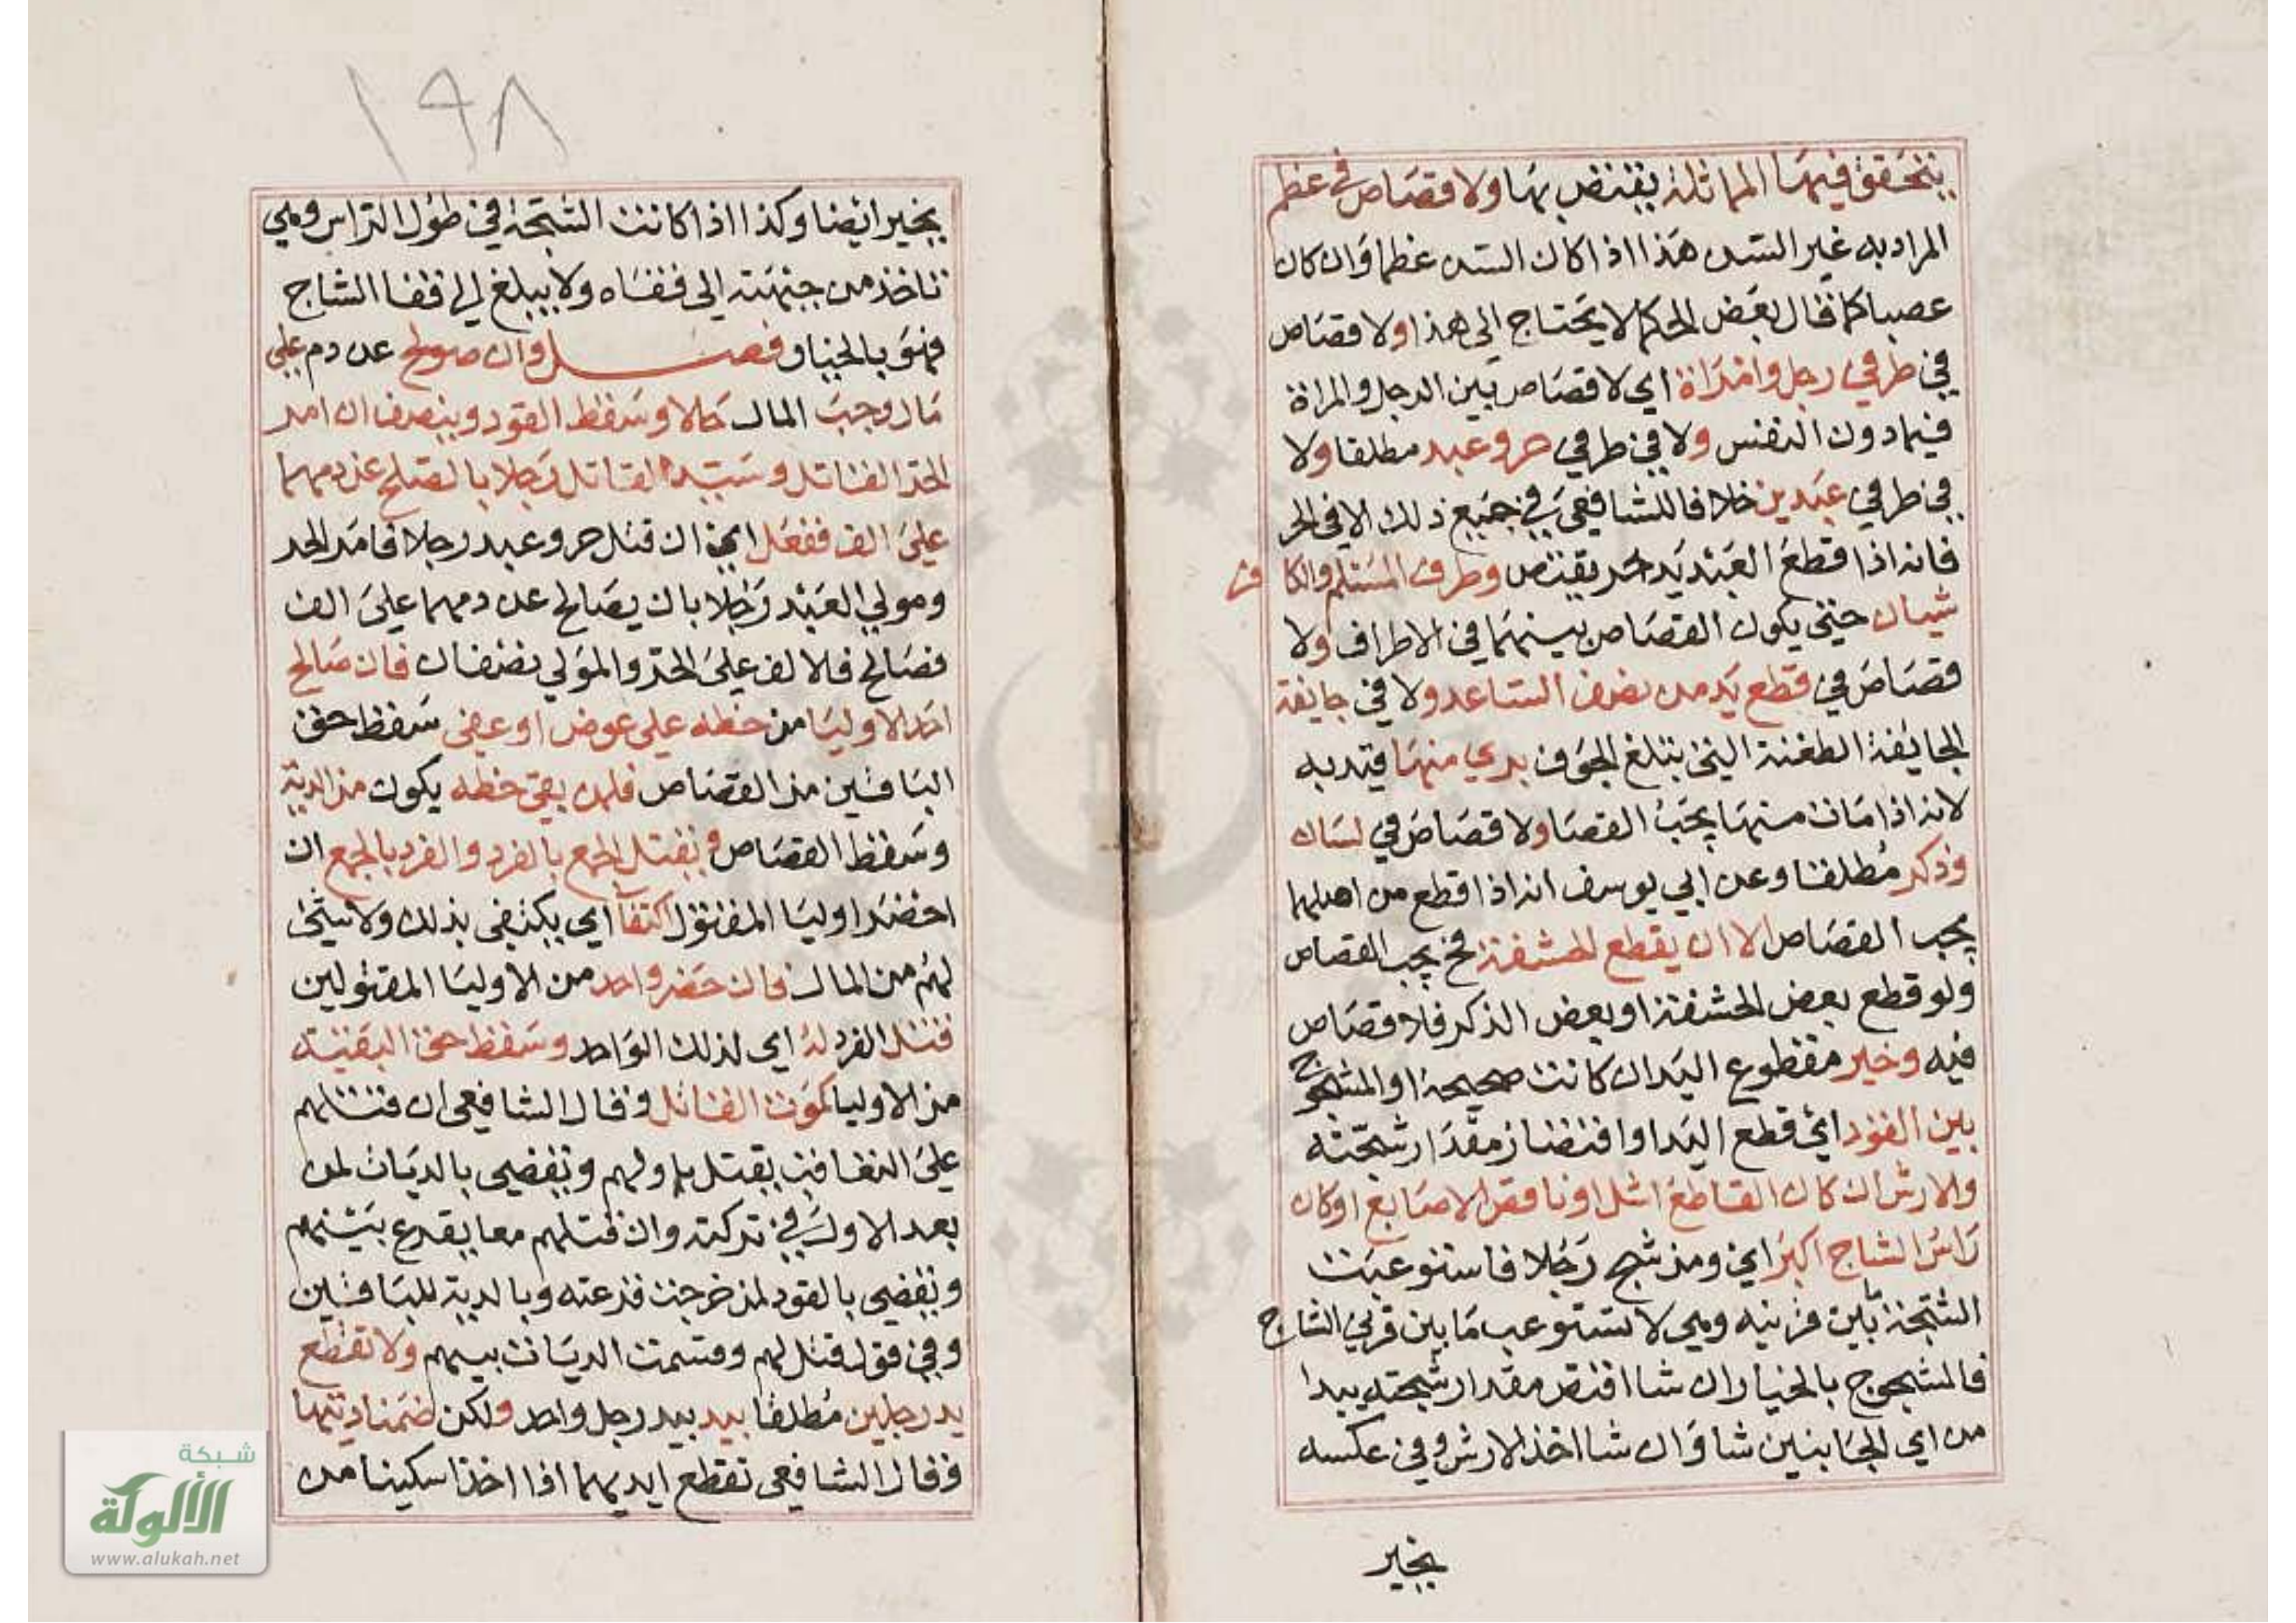 يتحقق فيها المماثلة يقتص بها ولا قصاص في عظم
المراد به غير السن هذا اذا كان السن عظما وان كان
عصبا كما قال بعض الحكما لا يحتاج الي هذا ولا قصاص
في طرفي رجل وامراة اي لا قصاص بين الرجل والمراة
فيما دون النفس ولا في طرفي حر وعبد مطلقا ولا
في طرفي عبدين خلافا للشافعي في جميع ذلك الا في الحر
فانه اذا قطع العبد يد حر يقتص وطرف المسلم والكافر
سيان حتي يكون القصاص بينهما في الاطراف ولا
قصاص في قطع يد من نصف الساعد ولا في جايفة
الجايفة الطعنة التي تبلغ الجوف بري منها قيد به
لانه اذا مات منها يجب القصا ولا قصاص في لسان
وذكر مطلقا وعن ابي يوسف انه اذا قطع من اصلهما
يجب القصاص الا ان يقطع الحشفة فح يجب القصاص
ولو قطع بعض الحشفة او بعض الذكر فلا قصاص
فيه وخير مقطوع اليد ان كانت صحيحة او المشجوج
بين القود اي قطع اليد او اقتصاز مقدار شجته
والارش ان كان القاطع اشل او ناقص الاصابع او كان
راس الشاج اكبر اي ومن شج رجلا فاستوعبت
الشجة ما بين قرنيه وهي لا تستوعب ما بين قرني الشاج
فالمشجوج بالخيار ان شا اقتص مقدار شجته يبدا
من اي الجانبين شا وان شا اخذ الارش وفي عكسه
يخير
١٩٨
يخير ايضا وكذا اذا كانت الشجة في طول الراس وهي
تاخذ من جبهته الي قفاه ولا يبلغ الي قفا الشاج
فهو بالخيار فصل وان صولح عن دم علي
مال وجب المال حالا وسقط القود وينصف ان امر
الحر القاتل وسيد القاتل رجلا بالصلح عن دمهما
علي الف ففعل اي ان قتل حر وعبد رجلا فامر الحر
ومولي العبد رجلا بان يصالح عن دمهما علي الف
فصالح فالالف علي الحر والمولي نصفان فان صالح
احد الاوليا من حظه علي عوض او عفي سقط حق
الباقين من القصاص فلمن بقي حظه يكون من الدية
وسقط القصاص ويقتل الجمع بالفرد والفرد بالجمع ان
احضر اوليا المقتول اكتفآ اي يكتفي بذلك ولا شي
لهم من المال فان حضر واحد من الاوليا المقتولين
قتل الفرد له اي لذلك الواحد وسقط حق البقية
من الاوليا كموت القاتل وقال الشافعي ان قتلهم
علي التعاقب يقتل باولهم ويقضي بالديات لمن
بعد الاول في تركته وان قتلهم معا يقرع بينهم
ويقضي بالقود لمن خرجت قرعته وبالدية للباقين
وفي قول قتل لهم وقسمت الديات بينهم ولا تقطع
يد رجلين مطلقا بيد بيد رجل واحد ولكن ضمنا ديتها
وقال الشافعي تقطع ايديهما اذا اخذا سكينا من
شبكة
الألوكة
www.alukah.net